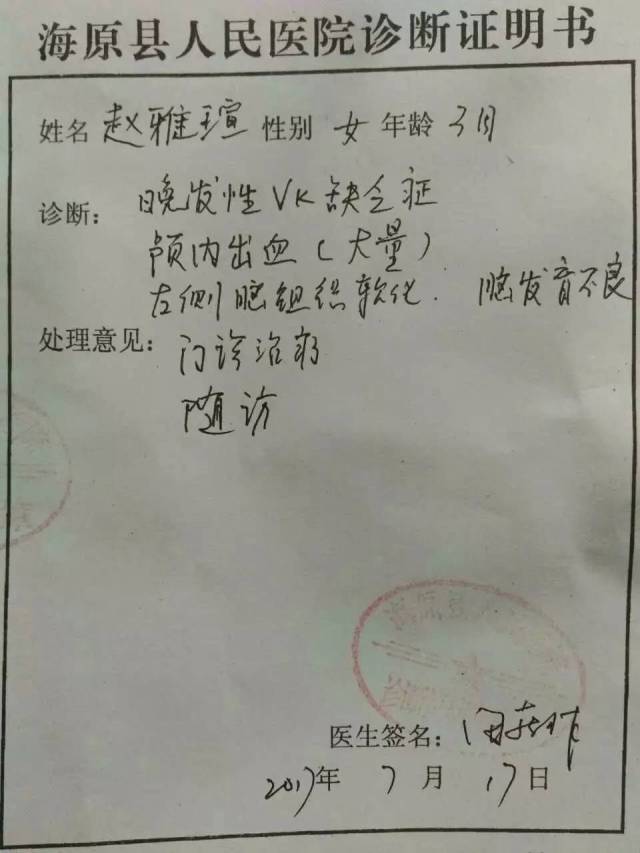 海原县人民医院诊断证明书
姓名 赵雅瑄 性别 女 年龄 3月
诊断： 晚发性VK缺乏症
颅内出血(大量)
左侧脑组织软化. 脑发育不良
处理意见： 门诊治疗
随访
医生签名：
2017年 7月 17日